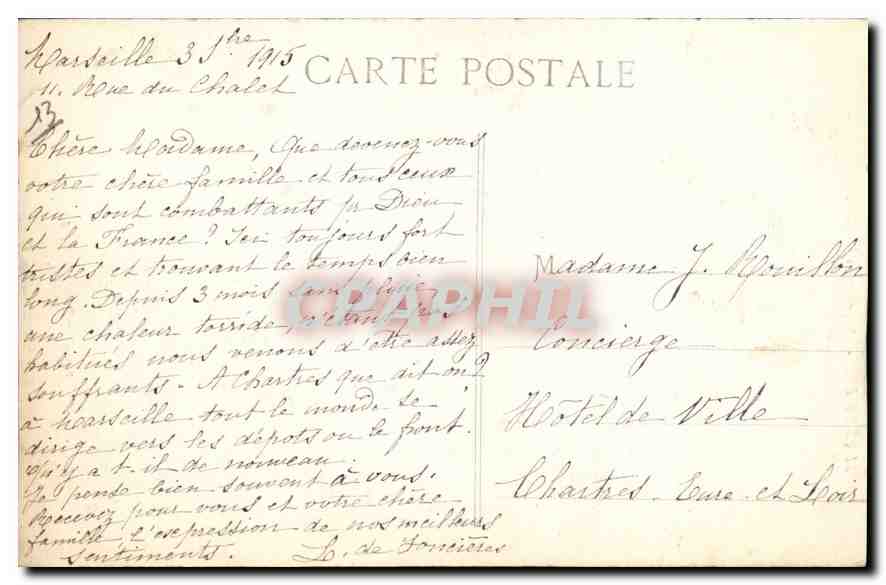 Marseille 3 S.bre 1915
11. Rue du Chalet
CARTE POSTALE
13
Chère Madame, Que devenez-vous
votre chère famille et tous ceux
qui sont combattants pr Dieu
et la France? Ici toujours fort
tristes et trouvant le temps bien
long. Depuis 3 mois sans pluie
une chaleur torride, n'étant pas
habitués nous venons d'être assez
souffrants. A Chartres que dit on?
à Marseille tout le monde se
dirige vers les dépots ou le front.
Qu'y a-t-il de nouveau.
Je pense bien souvent à vous.
Recevez pour vous et votre chère
famille l'expression de nos meilleurs
sentiments. L. de Foncières
Madame J. Rouillon
Concierge
Hôtel de Ville
Chartres. Eure-et-Loir
CPAPHIL